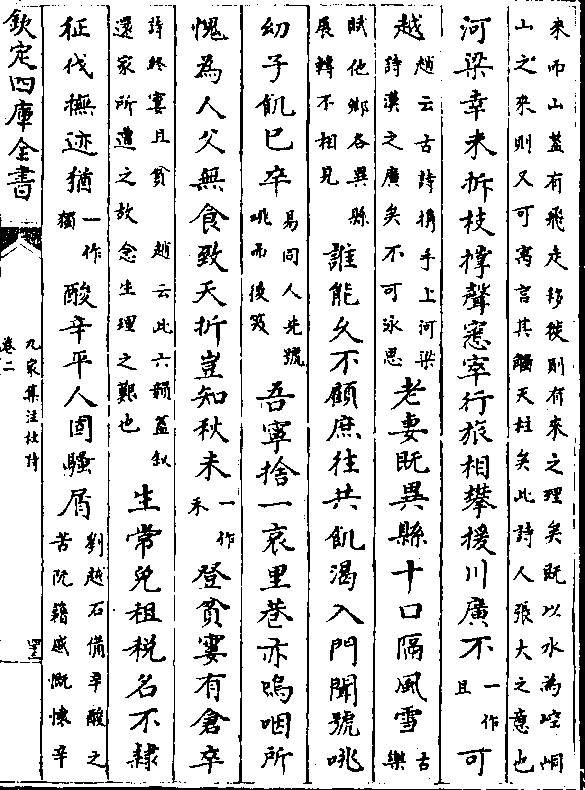 來而山蓋有飛走移徙則有來之理矣既以水為崆峒
山之來則又可寓言其觸天柱矣此詩人張大之意也
河梁幸未拆枝撑聲窸窣行旅相攀援川廣不一作且可
越趙云古詩攜手上河梁詩漢之廣矣不可泳思老妻既異縣十口隔風雪古樂
賦他鄉各異縣展轉不相見誰能久不顧庶往共飢渴入門聞號咷
幼子飢已卒易同人先號咷而後笑吾寧捨一哀里巷亦嗚咽所
愧為人父無食致夭折豈知秋未一作禾登貧窶有倉卒
詩終窶且貧 趙云此六韻蓋叙還家所遭之故念生理之艱也生常免租税名不隸
征伐撫迹猶一作獨酸辛平人固騷屑劉越石備辛酸之苦阮籍感慨懷辛
欽定四庫全書
九家集注杜詩
卷二